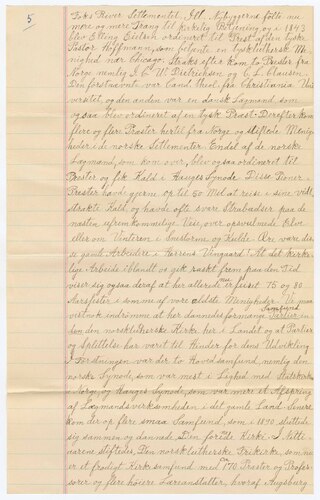 5
Fox River Settlementet, Ill. Nybyggerne følte nu
mere og mere Trang til kirkelig Betjening og i 1843
blev Elling Eielsen ordineret til Prest af den tyske
Pastor Hoffmann, som betjente en tysk luthersk Me-
nighed nær Chicago. Straks efter kom to Prester fra
Norge nemlig J. C. W. Dietrichsen og C. L. Clausen.
Den førstnævnte var Cand. theol. fra Christiania Uni-
versitet, og den anden var en dansk Lægmand som
ogsaa blev ordineret af en tysk Prest. Derefter kom
flere og flere Prester hertil fra Norge og stiftede Menig-
heder i de norske Settlementer. Endel af de norske
Lægmænd, som kom over, blev ogsaa ordineret til
Prester og fik Kald i Hauges Synode. Disse Pioner
Prester havde gjerne op til 50 Mil at reise i sine vidt-
strakte Kald, og havde ofte svare Strabadser paa de
næsten ufremkommelige Veie, over opsvulmede Elve
eller om Vinteren i Snestorm og Kulde. Ære være dis-
se gamle Arbeidere i Herrens Vingaard! At det kirke-
lige Arbeide iblandt os gik raskt frem paa den Tid
viser sig ogsaa deraf at her allerede er feiret 75 og 80
Aarsfester i somme af vore ældste Menigheder. Vi maa
vistnok indrømme at her dannedes for mange Partier in-
Samfund
den den norsk lutherske Kirke her i Landet og at Partier
og Splittelse har været til Hinder for dens Udvikling.
I Førstningen var der to Hovedsamfund, nemlig den
norske Synode, som var mest i Lighed med Statskirken
i Norge, og Hauges Synode, som var mere et Afspring
af Lægmandsvirksomheden i det gamle Land. Senere
kom der op flere smaa Samfund, som i 1890 sluttede
sig sammen og dannede, Den forenede Kirke. I Nitti
aarene stiftedes, Den norsk lutherske Frikirke, som nu
er et frodigt Kirkesamfund med 170 Prester og Profes-
sorer og flere høiere Læreanstalter, hvoraf Augsburg